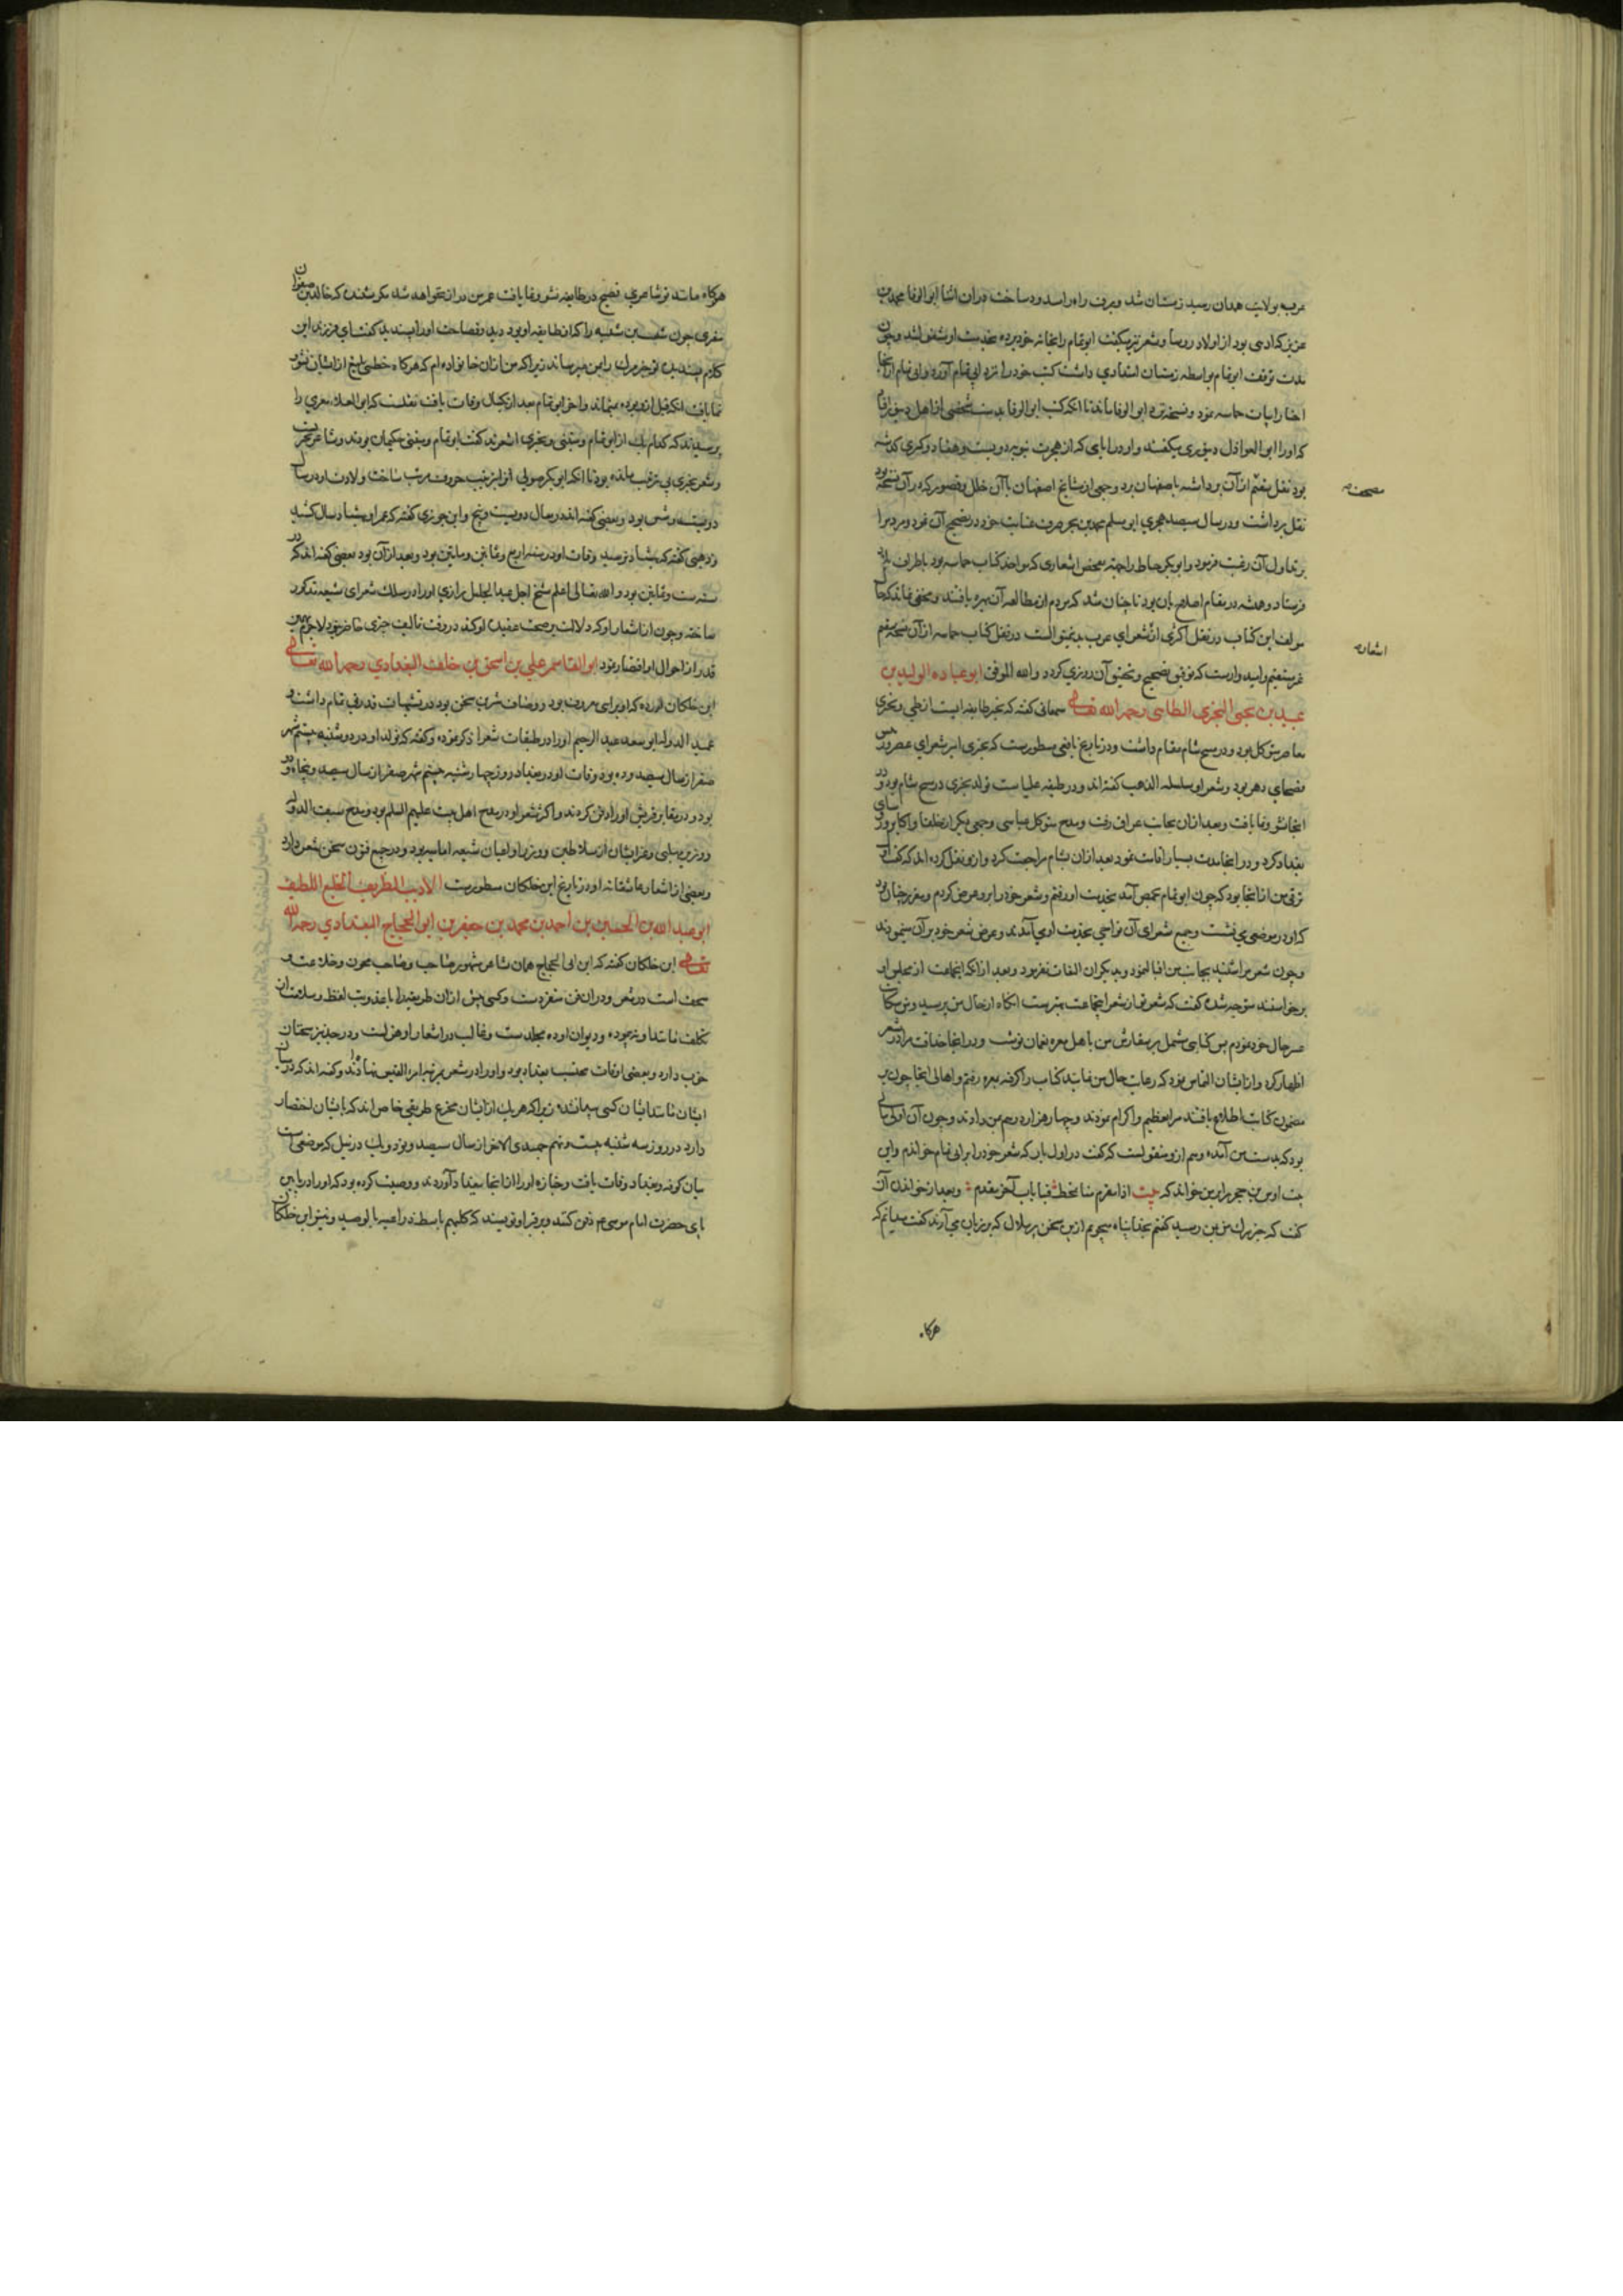 عرب بولایت همدان رسید زمستان شد و برف راه را مسدود ساخت در آن اثنا ابو الوفا محمد بن
عزیز که ادیب بود از اولاد روسا و شعر نیز میگفت ابو تمام را بخانه خود برده بخدمت او مشغول شد و چون
مدت توقف ابو تمام بواسطه زمستان امتدادی داشت کتب خود را نزد ابی تمام آورد و ابی تمام از آنجا
اختیار ابیات حماسه نمود و نسخه نزد ابو الوفا ماند تا آنکه کتب ابو الوفا بدست شخصی از اهل دینور افتاد
که او را ابو العواذل دینوری میگفتند و او در ایامی که از هجرت نبویه دویست و هفتاد و کسری گذشته
بود نقل سقیم از آن برداشته باصفهان برد و جمعی از مشایخ اصفهان با آن خلل و قصور که در آن نسخه بود
مصححه
نقل برداشت و در سال سیصد هجری ابو مسلم محمد بن بحر صرف عنایت خود در تصحیح آن نمود و مردم را
بر تداول آن رغبت فرمود و ابو بکر خیاط را جهة تفحص اشعاری که مواخذ کتاب حماسه بود باطراف بلاد
فرستاد و همیشه در مقام اصلاح آن بود تا چنان شد که مردم از مطالعه آن بهره یافتند و مخفی نماند که حال
مولف این کتاب در نقل اکثری از شعرای عرب بدینمنوالست در نقل کتاب حماسه از آن نسخه سقیم
اشعار
غیر مستقیم و امیدوارست که توفیق تصحیح و تحقیق آن روزی گردد والله الموفق ابو عباده الولید بن
عبید بن یحیی البحتری الطائی رحمه الله تعالی سمعانی گفته که بحتر طایفه ایست از طی و بحتری
معاصر متوکل بود و در منبج شام مقام داشت و در تاریخ یافعی مسطورست که بحتری امیر شعرای عصر و
فصحای دهر بود و شعر او سلسله الذهب گفته اند و در طبقه علیاست تولد بحتری در منبج شام بود و در
آنجا نشو و نما یافت و بعد از آن بجانب عراق رفت و مدح متوکل عباسی و جمعی دیگر از خلفا و اکابر و روسای
بغداد کرد و در آنجا مدت بسیار اقامت نمود بعد از آن بشام مراجعت کرد و از و نقل کرده اند که گفت اول
ترقی من از آنجا بود که چون ابو تمام بحمص آمد بخدمت او رفتم و شعر خود را بر و عرض کردم و مقرر چنان بود
که او در موضعی می نشست و جمیع شعرای آن نواحی بخدمت او می آمدند و عرض شعر خود بر آن مینمودند
و چون شعر مرا شنید بجانب من اقبال نمود و بدیگران التفات نفرمود و بعد از آنکه آنجماعت از مجلس او
برخواستند متوجه شده گفت که شعر تو از شعر اینجماعت بهترست آنگاه از حال من پرسید و من شکایت
عسر حال خود نمودم پس کتابی مشتمل بر سفارش من باهل معره نعمان نوشت و در آنجا حذاقت مرا در شعر
اظهار کرد و از ایشان التماس نمود که رعایت حال من نمایند کتاب را گرفته بمعره رفتم و اهالی آنجا چون بر
مضمون کتاب اطلاع یافتند مرا تعظیم و اکرام نمودند و چهار هزار درهم بمن دادند و چون آن اولی مالی
بود که بدست من آمده و هم از و منقولست که گفت در اول بار که شعر خود را بر ابی تمام خواندم و این
بیت اوس بن حجر را بر من خواند که بیت اذا مقرم منا تخمط فینا ناب آخر مقرم و بعد از خواندن آن
گفت که خبر مرگ من بمن رسید گفتم بخدا پناه میجویم ازین سخن پر ملال که بر زبان می آرند گفت میدانم که
هرگاه
هرگاه مانند تو شاعری فصیح در طایفه نشو و نما یافت عمر من دراز نخواهد شد مگر نشنیده که خالد بن صفوان
منقری چون شبیب بن شیبه را که از طایفه او بود دید و فصاحت او را پسندید گفت ای فرزند این
کلام پسندیده تو خبر مرگ را بمن میرساند زیرا که من از آن خانواده ام که هرگاه خطیبی بلیغ از ایشان نشو و
نما یافت آنکه قبل از و بوده نمیماند و آخر ابو تمام بعد از یکسال وفات یافت نقلست که ابو العلاء معری را
پرسیدند که کدام یک از ابو تمام و متنبی و بحتری اشعرند گفت ابو تمام و متنبی حکیمان بودند و شاعر بحتریست
و شعر بحتری بی ترتیب مانده بود تا آنکه ابو بکر صولی آنرا بترتیب حروف مرتب ساخت ولادت او در سال
دویست و شش بود و بعضی گفته اند در سال دویست و پنج و ابن جوزی گفته که عمر او بهشتاد سال کشید
و ذهبی گفته که بهشتاد نرسید وفات او در سنه اربع و ثمانین و مایتین بود و بعد از آن بود بعضی گفته اند که در
سنه ست و ثمانین بود و الله تعالی اعلم شیخ اجل عبد الجلیل رازی او را در سلک شعرای شیعه مذکور
ساخته و چون از اشعار او که دلالت بر صحت عقیده او کند در وقت تالیف چیزی حاضر نبود لاجرم بهمین
قدر از احوال او اقتصار نمود ابو القاسم علی بن اسحق بن خلف البغدادی رحمه الله تعالی
ابن خلکان آورده که او برای معروف بود و وصاف شیرین سخن بود در تشبیهات قدرتی تمام داشت و
عمید الدوله ابو سعد عبد الرحیم او را در طبقات شعرا ذکر نموده و گفته که تولد او در دوشنبه بیستم شهر
صفر از سال سیصد و ده بود و وفات او در بغداد روز چهارشنبه بیستم شهر صفر از سال سیصد و پنجاه و دو
بود و در مقابر قریش او را دفن کردند و اکثر شعر او در مدح اهل بیت علیهم السلم بود و مدح سیف الدوله
و وزیر مهلبی و غیر ایشان از سلاطین و وزرا و اعیان شیعه امامیه بود و در جمیع فنون سخن شعر دارد
و بعضی از اشعار عاشقانه او در تاریخ ابن خلکان مسطورست الادیب الظریف الخلیع اللطیف
ابو عبد الله بن الحسین بن احمد بن محمد بن جعفر بن ابو الحجاج البغدادی رحمه الله
تعالی ابن خلکان گفته که ابن ابی الحجاج همان شاعر مشهور صاحب مجون و خلاعت و
سخف است در شعر و در آن فن متفردست و کسی پیش از آن طریقه را با عذوبت لفظ و سلامت از
تکلف مانند او نپیموده و دیوان او ده مجلد ست و غالب در اشعار او هزلست و در جد نیز سخنان
خوب دارد و بعضی اوقات محتسب بغداد بود و او را در شعر بمرتبه امرء القیس نهاده اند و گفته اند که در میان
ایشان مانند ایشان کسی پیدا نشده زیرا که هر یک از ایشان مخترع طریقی خاص اند که بایشان اختصار
دارد در روز سه شنبه بیست و هفتم جمیدی الآخر از سال سیصد و نود و یک در نیل که موضعی است
میان کوفه و بغداد وفات یافت و جنازه او را از آنجا ببغداد آوردند و وصیت کرده بود که او را در پایین
پای حضرت امام موسی ع دفن کنند و بر قبر او نویسند که کلبهم باسط ذراعیه بالوصید و نیز ابن خلکان